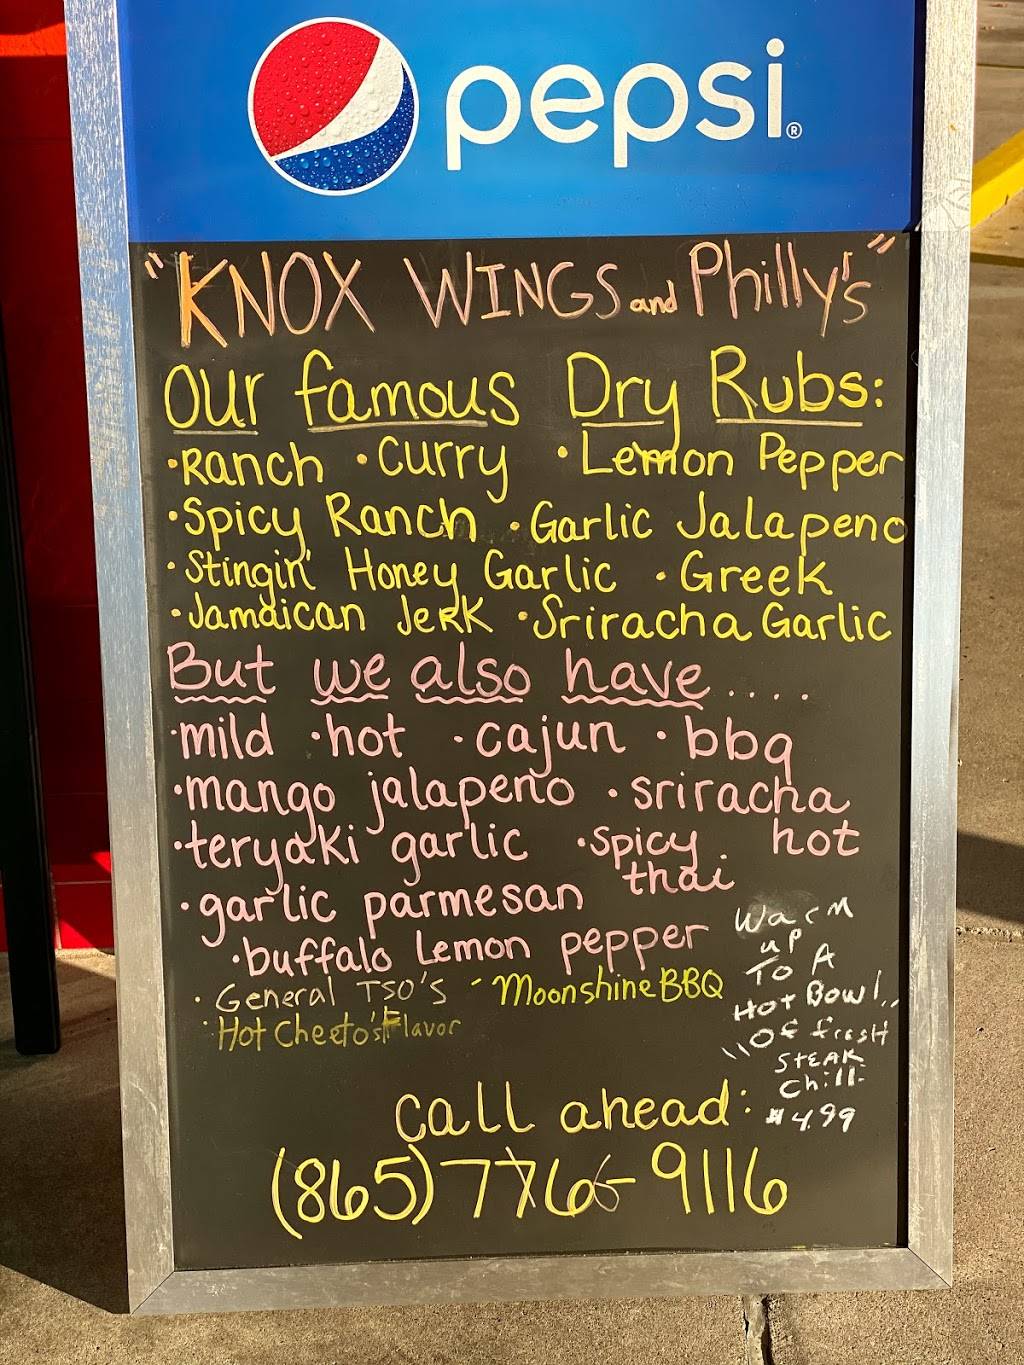 pepsi®
"KNOX WINGS and Philly's"
Our famous Dry Rubs:
•Ranch •Curry •Lemon Pepper
•Spicy Ranch •Garlic Jalapeno
•Stingin' Honey Garlic •Greek
•Jamaican Jerk •Sriracha Garlic
But we also have....
•mild •hot •cajun •bbq
•mango jalapeno •sriracha
•teryaki garlic •spicy hot
thai
•garlic parmesan
•buffalo Lemon pepper
•General TSO'S -Moonshine BBQ
•Hot Cheeto's Flavor
Warm
up
To A
Hot Bowl,,
"Of fresh
STEAK
Chili
$4.99
call ahead:
(865) 776-9116